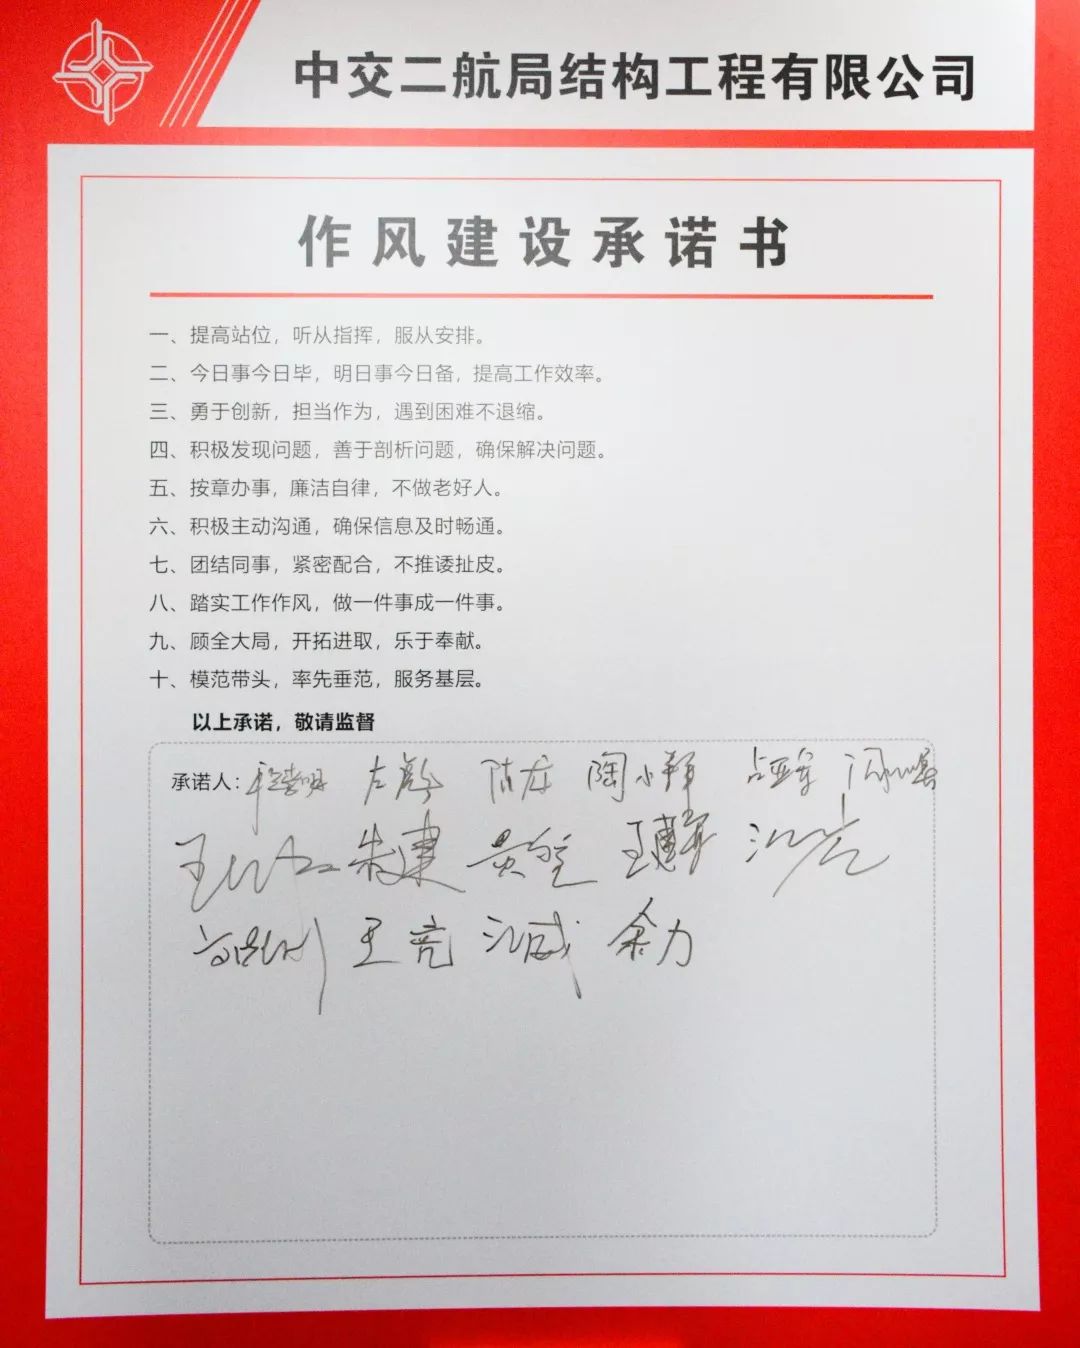 中交二航局结构工程有限公司
作风建设承诺书
一、提高站位，听从指挥，服从安排。
二、今日事今日毕，明日事今日备，提高工作效率。
三、勇于创新，担当作为，遇到困难不退缩。
四、积极发现问题，善于剖析问题，确保解决问题。
五、按章办事，廉洁自律，不做老好人。
六、积极主动沟通，确保信息及时畅通。
七、团结同事，紧密配合，不推诿扯皮。
八、踏实工作作风，做一件事成一件事。
九、顾全大局，开拓进取，乐于奉献。
十、模范带头，率先垂范，服务基层。
以上承诺，敬请监督
承诺人： 陈龙 陶小军
朱建
王亮 江威 余力